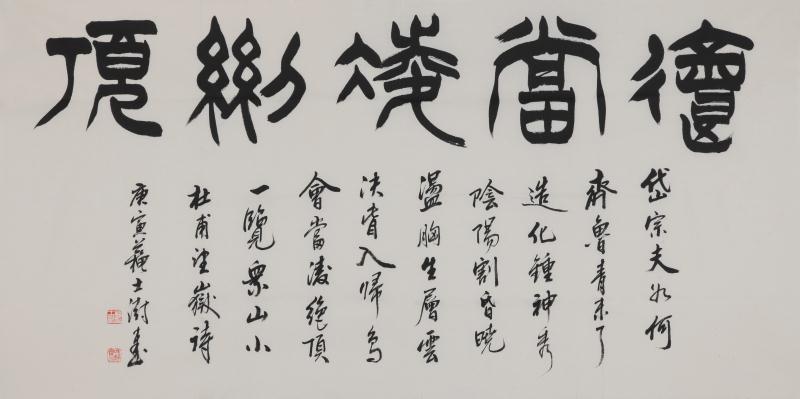 會當凌絕頂
岱宗夫如何
齊魯青未了
造化鍾神秀
陰陽割昏曉
盪胸生層雲
決眥入歸鳥
會當淩絕頂
一覽眾山小
杜甫望嶽詩
庚寅蘇士澍書